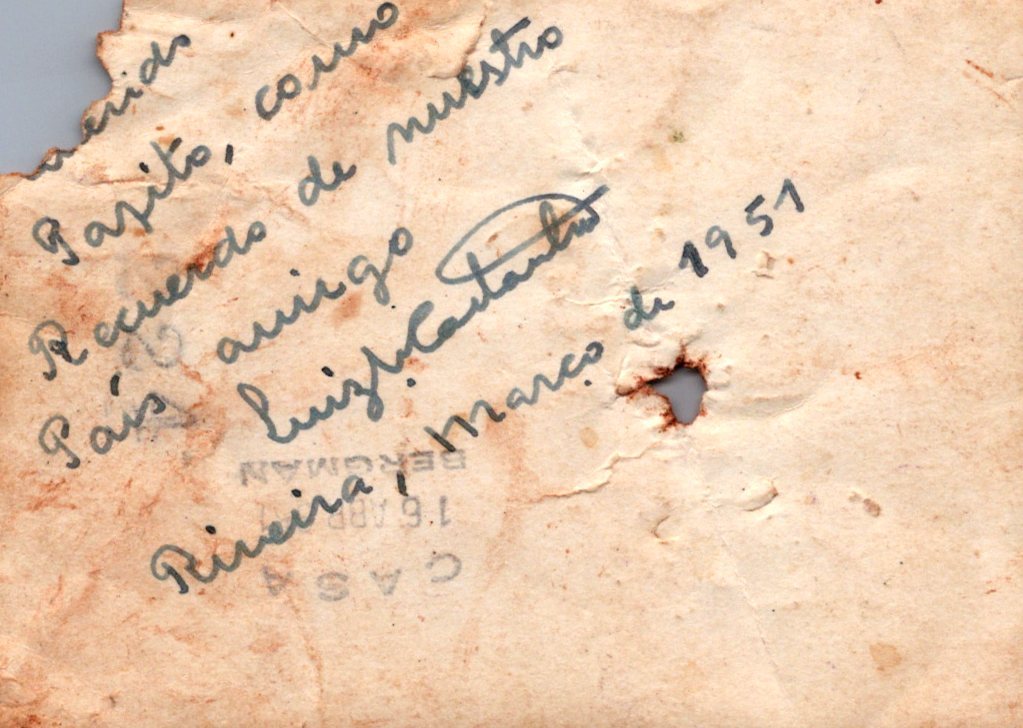 erido
Papito, como
Recuerdo de nuestro
País amigo
Luiz
Riveira, Março de 1951
CASA
16 ABR
BERGMAN